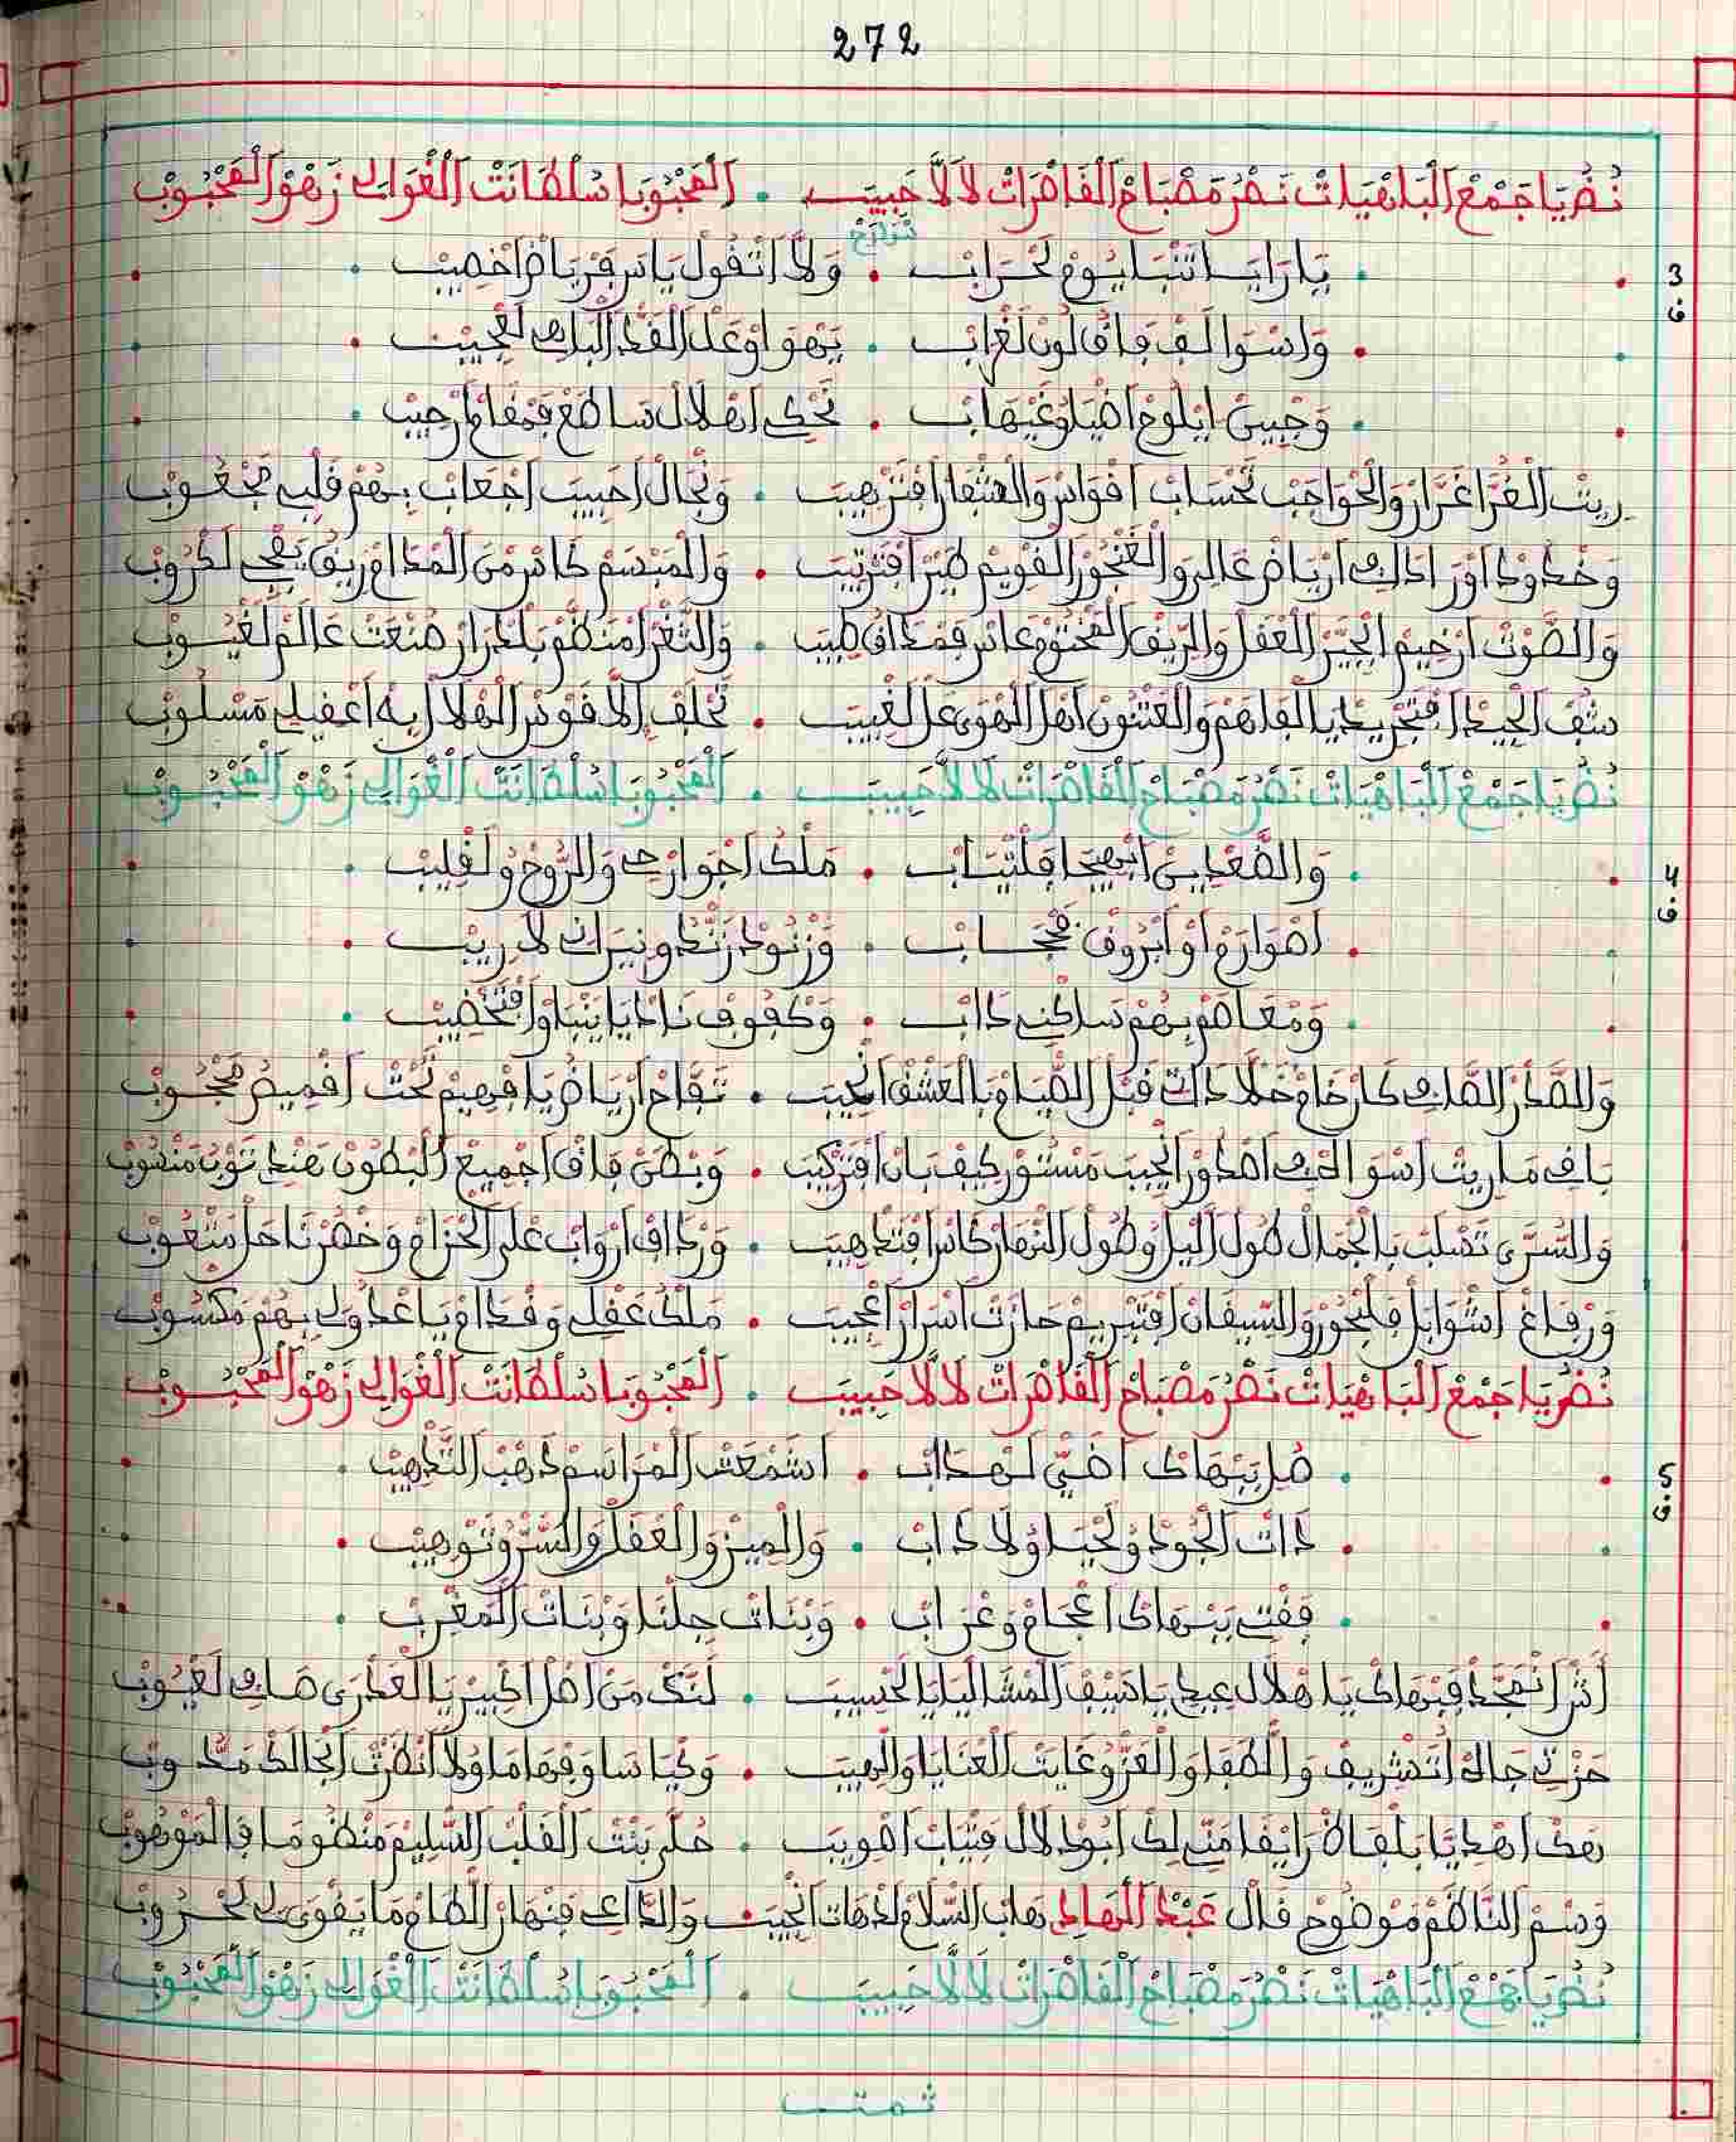 272
نُصُرْ يَا جَمْعْ اَلْبَاهْيَاتْ نَصْرُ مَصْبَاحْ اَلْقَاصْرَاتْ لَالَّا حَبِيبَ • اَلْمَحْبُوبَا سُلْطَانَتْ اَلْغْوَالِي زَهْوْ اَلْمَحْبُوبْ
3 يَا رَايَسْ تَنْبَا يُومْ لَحْرَابْ • وَلَّا اَتْقُولْ يَاسْ فَرْيَاضْ اَخْصِيبْ
ف
وَاسْوَالَفْ فَاقُ لُونْ لَغْرَابْ • يَهْوَاوْ عَلَ اَلْقَدّْ اَلْبَاهِي لَعْجِيبْ
وَجْبِينْ اِيْلُوحْ اَضْيَاوُ غَيْهَابْ • تَحْكِي اَهْلَالْ سَاطَعْ فَمْقَامْ اَرْحِيبْ
رِيتْ اَلْغُرَّا غَرَّارْ وَالْحْوَاجَبْ تَحْسَابْ اَقْوَاسْ وَالشْفَارْ اَفْتَرْهِيبَ • وَنْجَالْ اَحْبِيبَ اَجْعَابْ بِهُمْ قَلْبِي مَجْعُوبْ
وَخْدُودْ اَوْرَادْ اَلِّي اَرْيَاضْ غَالِي وَالْغَنْجُورْ اَلْقْوِيمْ طَيْرْ اَفْتَرْتِيبَ • وَالْمَبْسَمْ كَاسْ مْنْ اَلْمْدَامْ رِيقُ يَفْجِي لَكْرُوبْ
وَالصَّوْتْ اَرْخِيمْ اِيْحَيَّرْ اَلْعْقَلْ وَالرِّيقْ اَلْمَخْتُومْ عَاسْ فَمْدَاقُ طِيبَ • وَالثَّغْرْ اَمْنَظَّمْ بَلْدْرَارْ صَنْعَتْ عَالَمْ لَغْيُوبْ
شُفْ اَلْجِيدْ اَفْتَجْرِيدْ يَا الْفَاهَمْ وَالْعَثْنُونْ اَهْلْ اَلْهْوَى عَلَ لَغْبِيبَ • تَحْلَفْ اِلَّا قَوْسْ اَلْهْلَالْ بِهْ اَعْقِيلِي مَسْلُوبْ
نُصُرْ يَا جَمْعْ اَلْبَاهْيَاتْ نَصْرُ مَصْبَاحْ اَلْقَاصْرَاتْ لَالَّا حَبِيبَ • اَلْمَحْبُوبَا سُلْطَانَتْ اَلْغْوَالِي زَهْوْ اَلْمَحْبُوبْ
4 وَالضَّعْدِينْ اَبْهِيجَا فَلْتْيَابْ • مَلْكْ اَجْوَارْحِي وَالرُّوحْ وُلَقْلِيبْ
ف
اَصْوَارَمْ اَوْ اَبْرُوقْ فَحْجَابْ • وَزْنُودْ زَنْدُو نِيرَانِي لَا رِيبْ
وَمْعَاصَمْ بِهُمْ سَاكْنِي دَابْ • وَكْفُوفْ نَادْيَا يَنْبَاوْ اَفْتَخْضِيبْ
وَالصَّدْرْ اَلصَّافِي كَارْخَامْ خَلَّا دَاتِي قَبْلْ اَلصّْيَامْ بَالْعَشْقْ اَنْحِيبَ • تَفَّاحْ اَرْيَاضُ يَا فْهِيمْ تَحْتْ اَقْمِيصُ مَحْجُوبْ
بَاقِي مَا رِيتْ اَسْوَا الْحْفِي اَصْدُورْ اَلْحْبِيبَ مَسْتُورْ كِيفْ بَانْ اَفْتَرْكِيبَ • وَبْطَنْ فَاقْ اَجْمِيعْ اَلْبْطُونْ هَنْدِي تَوْبُ مَنْصُوبْ
وَالسُّرَّى تَصْلَبْ بَالْجْمَالْ طُولْ اَلِّيلْ وَطُولْ اَلنّْهَارْ كَاسْ اَفْتَدْهِيبَ • وَرْدَافْ اَرْوَابْ عْلَى الْحْزَامْ وَخْصَرْنَا حَلْ شْعُوبْ
وَرْفَاغْ اَشْوَابَلْ فَلْبْحُورْ وَالسِّيقَانْ اَفْتَبْرِيمْ حَازَتْ اَسْرَارْ اَعْجِيبَ • مَلْكْ عَقْلِي وَقْدَامْ يَا عْدُولِي بِهُمْ مَكْسُوبْ
نُصُرْ يَا جَمْعْ اَلْبَاهْيَاتْ نَصْرُ مَصْبَاحْ اَلْقَاصْرَاتْ لَالَّا حَبِيبَ • اَلْمَحْبُوبَا سُلْطَانَتْ اَلْغْوَالِي زَهْوْ اَلْمَحْبُوبْ
5 صُلْ بَبْهَاكْ اَضَيّْ لَهْدَابْ • اَشْمْعَتْ اَلْمْرَاسَمْ دَهْبْ اَلتَّدْهِيبْ
ف
دَاتْ اَلْجُودْ وُلَحْيَا وُلَادَابْ • وَالْمِيزْ وَالْعْقَلْ وَالسَّرّْ وُتَوْهِيبْ
فَقْتِ بَبْهَاكْ اَعْجَامْ وَعْرَابْ • وَبْنَاتْ جِلْنَا وَبْنَاتْ اَلْمَغْرِبْ
اَشْ اَنْمَجَّدْ فَبْهَاكْ يَا هْلَالْ عِيدِي يَا سَيْفْ اَلْمْشَالْيَا يَا الْحْسِيبَ • لَنَّكْ مَنْ اَصَلْ اَكْبِيرْ يَا الْعَدْرَى صَافِي لَغْيُوبْ
حَزْتِي جَاهْ اَتْشْرِيفْ وَالصّْفَا وَالْعَزّْ وُغَايَتْ اَلْعْنَايَا وَالْهِيبَ • وَكْيَاسَا وَفْهَامَا وُلَا اَنْظَرْتْ اَبْحَالَكْ مَنْدُوبْ
هَاكْ اَهْدِيَّا بَلْفَاضْ رَايْقَا مَنِّي لِكْ اَبُودْلَالْ فَتْيَابْ اَقْوِيبَ • حُلَّ بَنْتْ اَلْقَلْبْ اَلسّْلِيمْ مَنْظُومَا فَالْمَوْهُوبْ
وَسْمْ اَلنَّاظَمْ مَوْضُوحْ قَالْ عَبْدْ اَلْهَادِي هَابْ اَلسّْلَامْ لَدْهَاتْ اَنْجِيبَ • وَالدَّاعِي فَنْهَارْ اَلطَّامْ مَا يَقْوَى لِي لَحْرُوبْ
نُصُرْ يَا جَمْعْ اَلْبَاهْيَاتْ نَصْرُ مَصْبَاحْ اَلْقَاصْرَاتْ لَالَّا حَبِيبَ • اَلْمَحْبُوبَا سُلْطَانَتْ اَلْغْوَالِي زَهْوْ اَلْمَحْبُوبْ
تمت